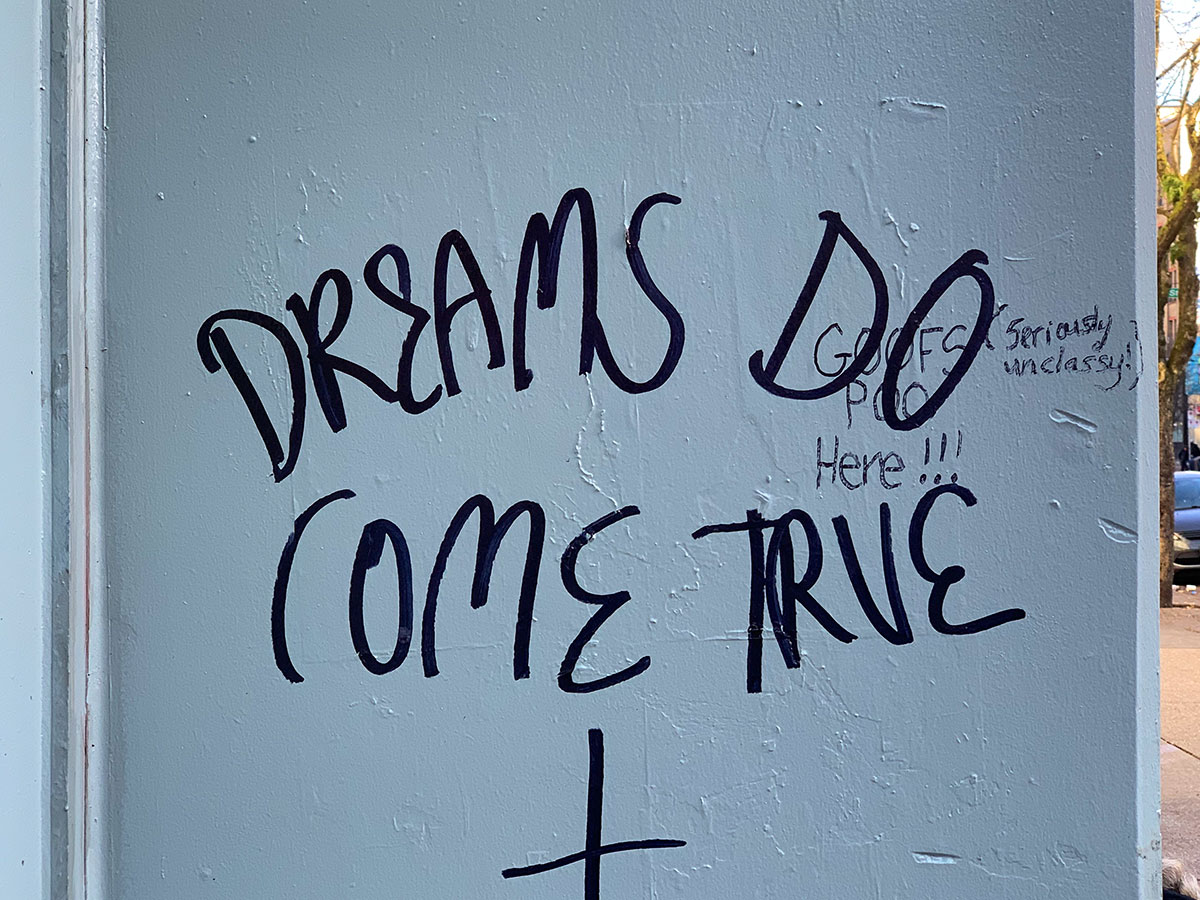 DREAMS DO
GOOFS (Seriously
unclassy!)
POO
Here!!!
COME TRUE